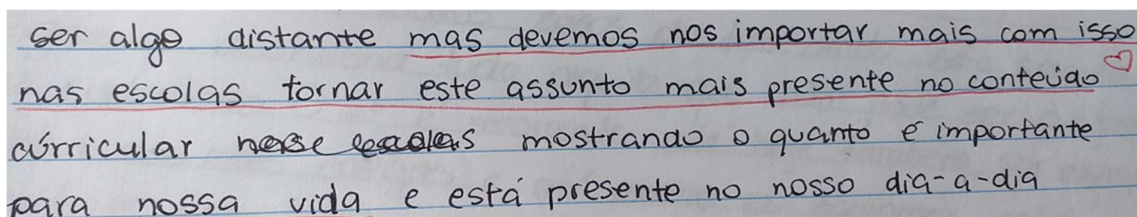 ser algo distante mas devemos nos importar mais com isso
nas escolas tornar este assunto mais presente no conteúdo
cúrricular nesse escolas mostrando o quanto é importante
para nossa vida e está presente no nosso dia-a-dia